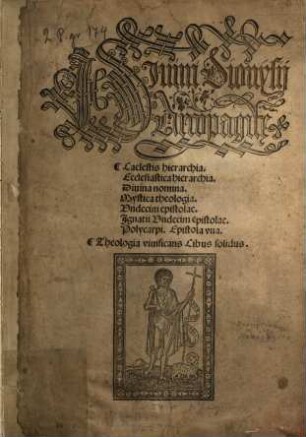 Diuini Dionysij
Areopagite
Caelestis hierarchia.
Ecclesiastica hierarchia.
Diuina nomina.
Mystica theologia.
Vndecim epistolae.
Ignatii Vndecim epistolae.
Polycarpi. Epistola vna.
Theologia viuificans Cibus solidus.